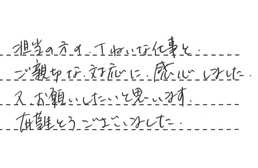 担当の方の、丁ねいな仕事と
ご親切な対応に感心しました
又お願いしたいと思います
有難とうございました